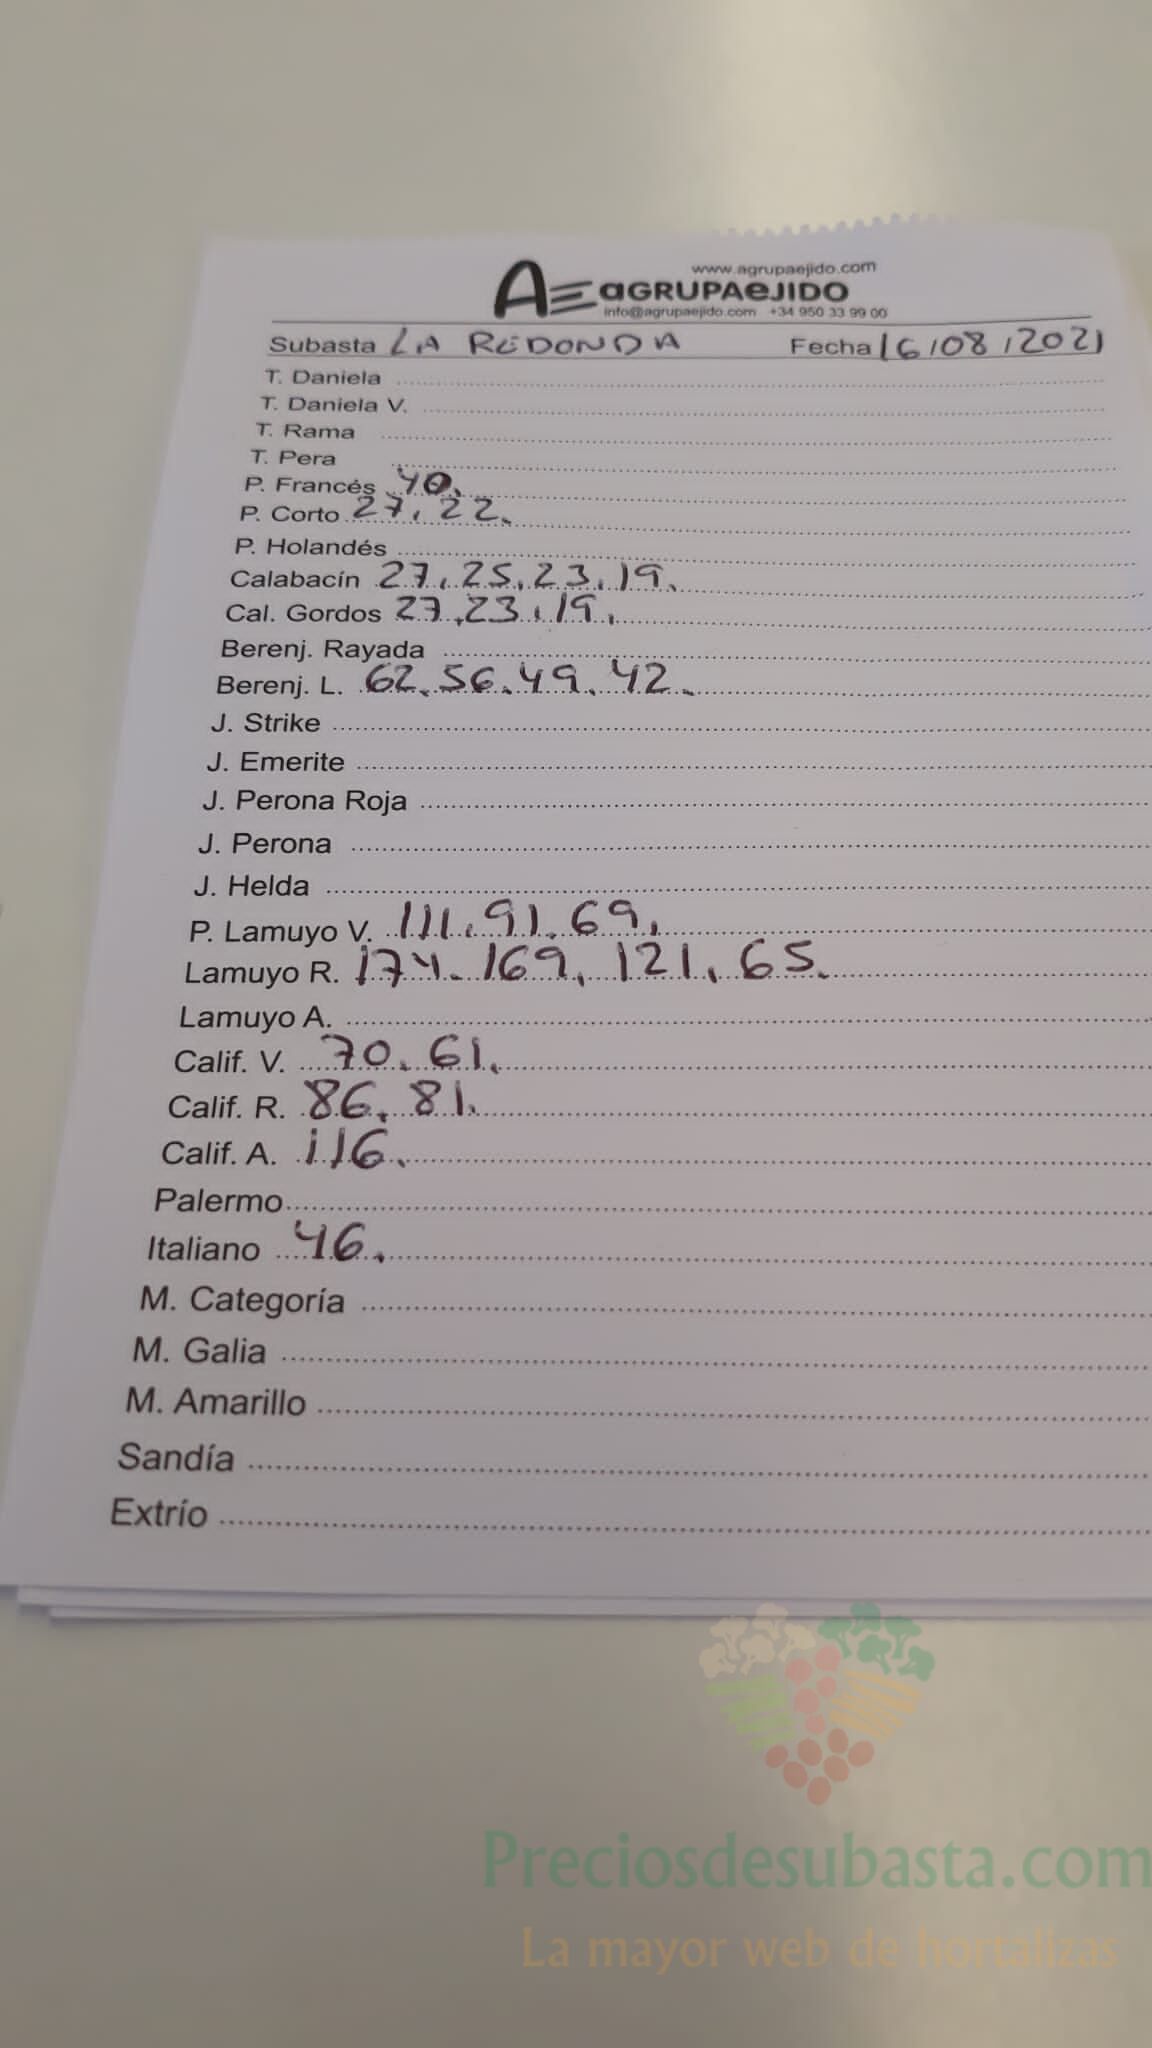 www.agrupaejido.com
AE aGRUPAeJIDO
info@agrupaejido.com +34 950 33 99 00
Subasta LA REDONDA Fecha 16/08/2021
T. Daniela
T. Daniela V.
T. Rama
T. Pera
P. Francés 40.
P. Corto 27, 22.
P. Holandés
Calabacín 27, 25, 23, 19.
Cal. Gordos 27, 23, 19.
Berenj. Rayada
Berenj. L. 62. 56. 49. 42.
J. Strike
J. Emerite
J. Perona Roja
J. Perona
J. Helda
P. Lamuyo V. 111. 91. 69.
Lamuyo R. 174. 169, 121, 65.
Lamuyo A.
Calif. V. 70. 61.
Calif. R. 86. 81.
Calif. A. 116.
Palermo
Italiano 46.
M. Categoría
M. Galia
M. Amarillo
Sandía
Extrío
Preciosdesubasta.com
La mayor web de hortalizas